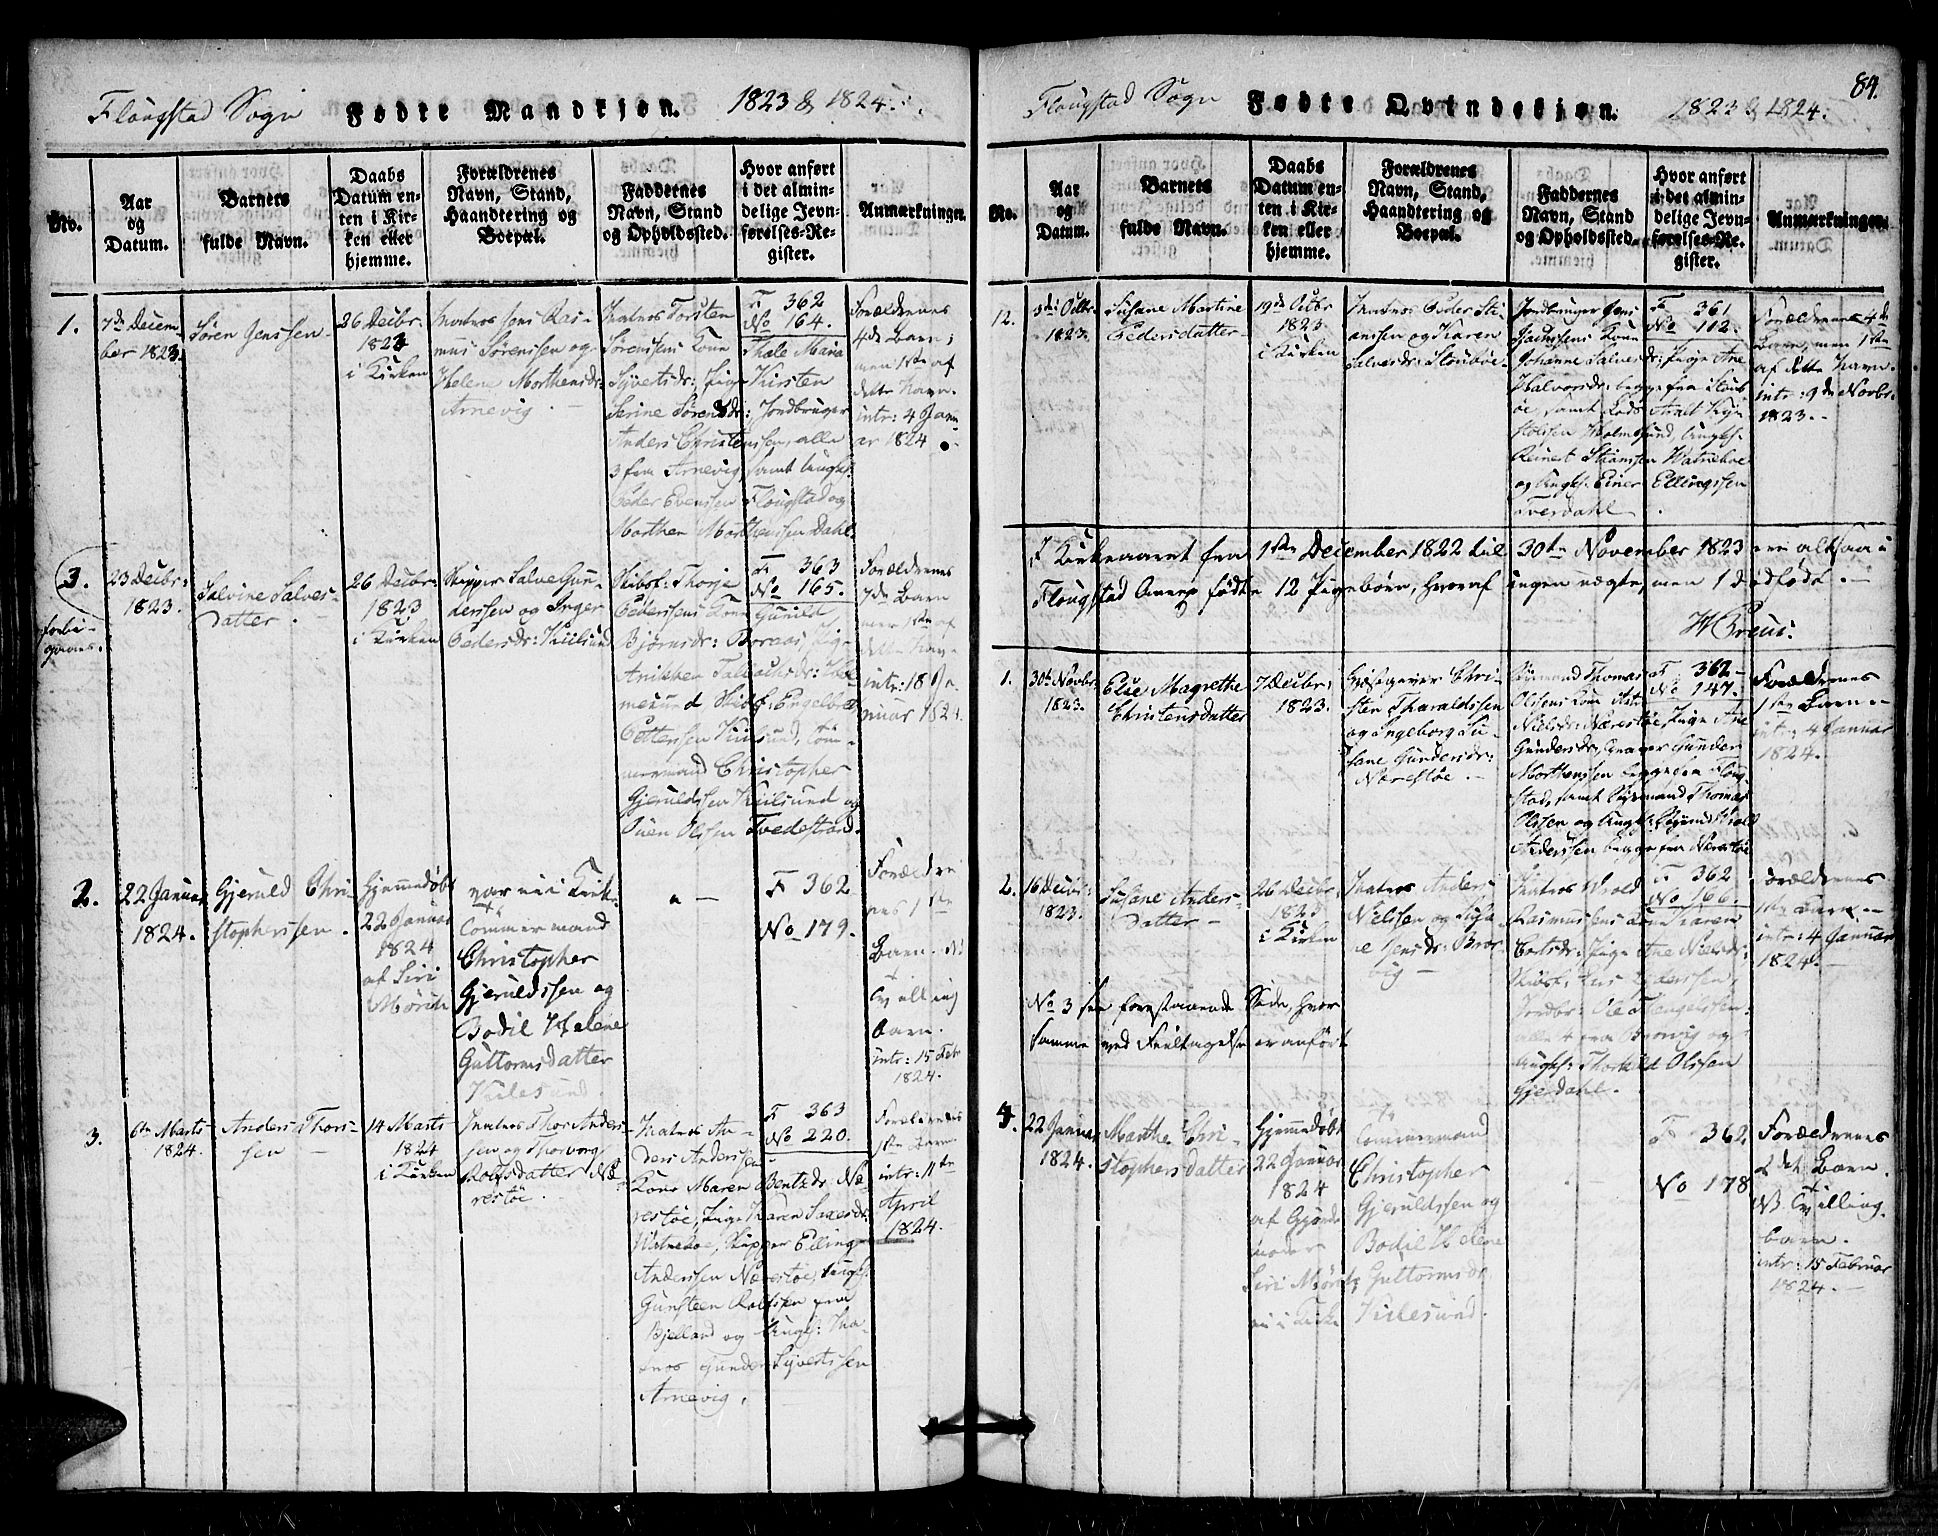 Flougstad Sogn Fødte Mandkjøn. 1823 & 1824.
No.
Aar
og
Datum.
Barnets
fulde Navn.
Daabs
Datum en-
ten i Kir-
ken eller
hjemme.
Forældrenes
Navn, Stand,
Haandtering og
Boepæl.
Faddernes
Navn, Stand
og Opholdssted.
Hvor anført
i det almin-
delige Jevn-
førelses-Re-
gister.
Anmærkninger.
1.
7de Decem-
ber 1823.
Søren Jenssen
26 Decbr.
1823
i Kirken
Jens Ras-
mus Sørenssen og
Helene Morthensdr:
Arnevig.
Torsten
Sørenssens Kone
Syvertsdr: Pige
Serine Sørensdr: Jordbruger
Anders Christenssen, alle
3 fra Arnevig, samt Ungks.
Peder Evenssen Flougstad og
Morthen Morthenssen Dahl.
F 362
No 164.
Thale Maria
Kirsten
Forældrenes
4de Barn;
men 1ste af
dette Navn.
intr: 4 Janu-
ar 1824.
3.
forbi-
gaaes.
23 Decbr:
1823.
Salvine Salves-
datter.
26 Decbr:
1823
i Kirken
Skipper Salve Gun-
derssen og Inger
Pedersdr: Kiilsund
Terje
Pederssens Kone Gunild
Bjørnsdr: Boraas, Pige
Anikken Tallachsdr: Hol-
mesund Engelbret
Petterssen Kiilsund, Tøm-
mermand Christopher
Gjeruldssen Kiilsund og
Ouen Olssen Tvedestrand.
F 363
No 165.
Forældrenes
7de Barn
men 1ste af
dette Navn
intr: 18 Ja-
nuar 1824.
2.
22 Januar
1824.
Gjeruld Chri-
stopherssen.
Hjemmedøbt
22 Januar
1824
af Siri
Mørch
var ei i Kirk.
Tømmermand
Christopher
Gjeruldssen og
Bodil Helene
Guttormsdatter
Kilesund
F 362
No 179.
Forældre-
nes 1ste
Barn.
Tvilling
Barn.
intr: 15 Feb
1824.
3.
6te Marts
1824.
Anders Thors-
sen
14 Marts
1824
i Kirken
Thor Anders-
sen og Thorborg
Rolfsdatter Næ-
restøe.
An-
ders Anderssens
Kone Maren Bentzdr. Næ-
restøe, Pige Karen
Watneboe, Skipper Elling
Anderssen Nærestøe, Ungks.
Gunsteen Rolfssen fra
Bjelland og Ungks: Tho-
mas Gunder Syvertssen
Arnevig.
F 363
No 220.
Forældrenes
1ste Barn
intr: 11te
April
1824.
Flougstad Sogn Fødte Qvindekjøn. 1823 & 1824.
84.
No.
Aar
og
Datum.
Barnets
fulde Navn.
Daabs
Datum en-
ten i Kir-
ken eller
hjemme.
Forældrenes
Navn, Stand,
Haandtering og
Boepæl.
Faddernes
Navn, Stand
og Opholdssted.
Hvor anført
i det almin-
delige Jevn-
førelses-Re-
gister.
Anmærkninger.
12.
Octbr.
1823.
Susane Martine
Pedersdatter
19de Octbr
1823.
i Kirken
Peder Sti-
anssen og Karen
Salvesdr: Stoubøe
Jordbruger Jens
Jachnssens Kone
Johanne Salvesdr: Pige Ane
Halvorsdr: begge fra Stoub-
øe, samt Lods
Holmesund, Ungks.
Reinert Stianssen Watneboe
og Ungks. Einer Ellingssen
Tverdahl
F 361
No 112.
Forældrenes 4de
Barn, men 1ste
af dette Navn.
intr: 9de Novbr.
1823.
I Kirkeaaret fra 1ste December 1822 til 30te November 1823 ere altsaa i
Flougstad Annex fødte 12 Pigebørn, hvoraf ingen uægte, men 1 dødfødt.
1.
30te Novbr.
1823.
Else Magrethe
Christensdatter
7 Decbr:
1823.
Gjæstgiver Chri-
sten Tharaldssen
og Ingeborg Su-
sane Gundersdr:
Nærestøe.
Styrmand Thomas
Olssens Kone
Nielsdr: Nærestøe, Pige Ane
Gundersdr, Gunder
Morthenssen begge fra Floug-
stad, samt Styrmand Thomas
Olssen og Ungks:
Anderssen begge fra Nærestøe
F 362
No 147.
Forældrenes
1ste Barn
intr: 4 Januar
1824.
2.
16 Decbr:
1823.
Susane Anders-
datter
26 Decbr:
1823
i Kirken
Anders
Nielssen og Susa-
ne Jensdr: Bror-
vig
Rasmussens Kone Karen
Pige Ane Nielsdr:
alle 4 fra Brorvig og
Ungks: Thorkild Olssen
Gjerdahl.
F 362
No 166
Forældrenes
1ste Barn.
intr: 4 Januar
1824.
No 3 see forestaaende Side, hvor
samme ved Feiltagelse er anført
4.
22 Januar
1824.
Marthe Chri-
stophersdatter
Hjemmedøbt
22 Januar
1824
af Gjorde-
moder
Siri Mørch
ei i Kirke
Tømmermand
Christopher
Gjeruldssen og
Bodil Helene
Guttormsdr.
Kilesund.
F 362
No 178
Forældrenes
2det Barn.
NB Tvilling-
barn.
intr: 15 Februar
1824.